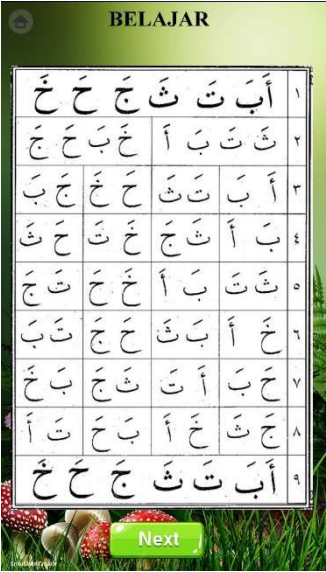 BELAJAR
١ أَ بَ تَ ثَ جَ حَ خَ
٢ ثَ تَ بَ أَ خَ بَ حَ جَ
٣ أَ بَ تَ ثَ حَ خَ جَ بَ
٤ بَ أَ ثَ جَ خَ تَ حَ ثَ
٥ ثَ تَ بَ أَ خَ حَ تَ جَ
٦ خَ أَ بَ ثَ حَ جَ تَ بَ
٧ حَ بَ أَ تَ ثَ جَ بَ خَ
٨ جَ ثَ خَ أَ بَ حَ تَ أَ
٩ أَ بَ تَ ثَ جَ حَ خَ
Next